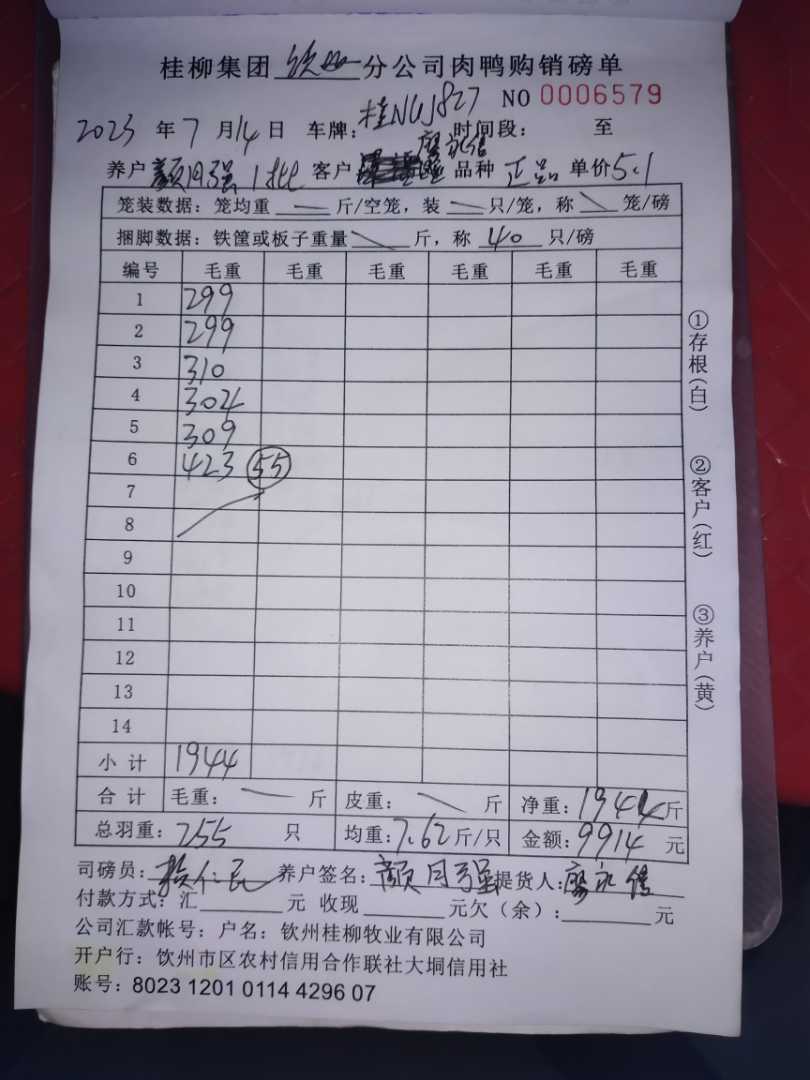 桂柳集团 钦州 分公司肉鸭购销磅单
NO 0006579
2023 年 7 月 14 日 车牌：桂NWJ827 时间段： 至
养户 颜月强 1批 客户 廖永信 品种 正品 单价 5.1
笼装数据：笼均重 — 斤/空笼，装 — 只/笼，称 \ 笼/磅
捆脚数据：铁筐或板子重量 \ 斤，称 40 只/磅
编号 毛重 毛重 毛重 毛重 毛重 毛重
1 299
2 299
3 310
4 304
5 309
6 423 55
7
8
9
10
11
12
13
14
小计 1944
合计 毛重： — 斤 皮重： \ 斤 净重：1944 斤
总羽重：255 只 均重：7.62 斤/只 金额：9914 元
司磅员： 仁民 养户签名：颜月强 提货人：廖永信
付款方式：汇 元 收现 元欠（余）： 元
公司汇款帐号：户名：钦州桂柳牧业有限公司
开户行：钦州市区农村信用合作联社大垌信用社
账号：8023 1201 0114 4296 07
①存根（白）
②客户（红）
③养户（黄）